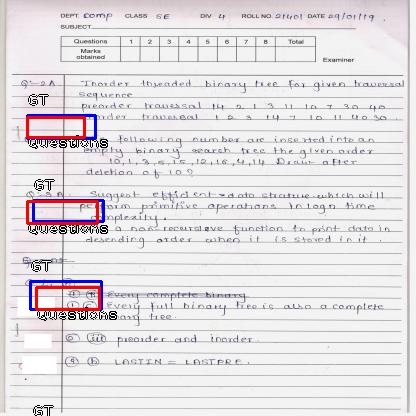 DEPT. Comp CLASS SE DIV 4 ROLL NO. 21401 DATE 29/01/19
SUBJECT
Questions 1 2 3 4 5 6 7 8 Total
Marks obtained
Examiner
Q-2A Inorder threaded binary tree for given traversal
sequence
GT
preorder traversal 14 2 1 3 11 10 7 30 40
traversal 1 2 3 14 7 10 11 40 30
following number are inserted into an
Questions
empty binary search tree the given order
10, 1, 3, 5, 15, 12, 16, 4, 14 Draw after
deletion of 10?
GT
Suggest efficient data which will
perform primitive operations in logn time
complexity.
Questions
a non recursive function to print data in
desending order when it is stored in it.
GT
Every complete binary
Every full binary tree is also a complete
Questions
tree.
preorder and inorder.
LASTIN = LASTPRE.
GT